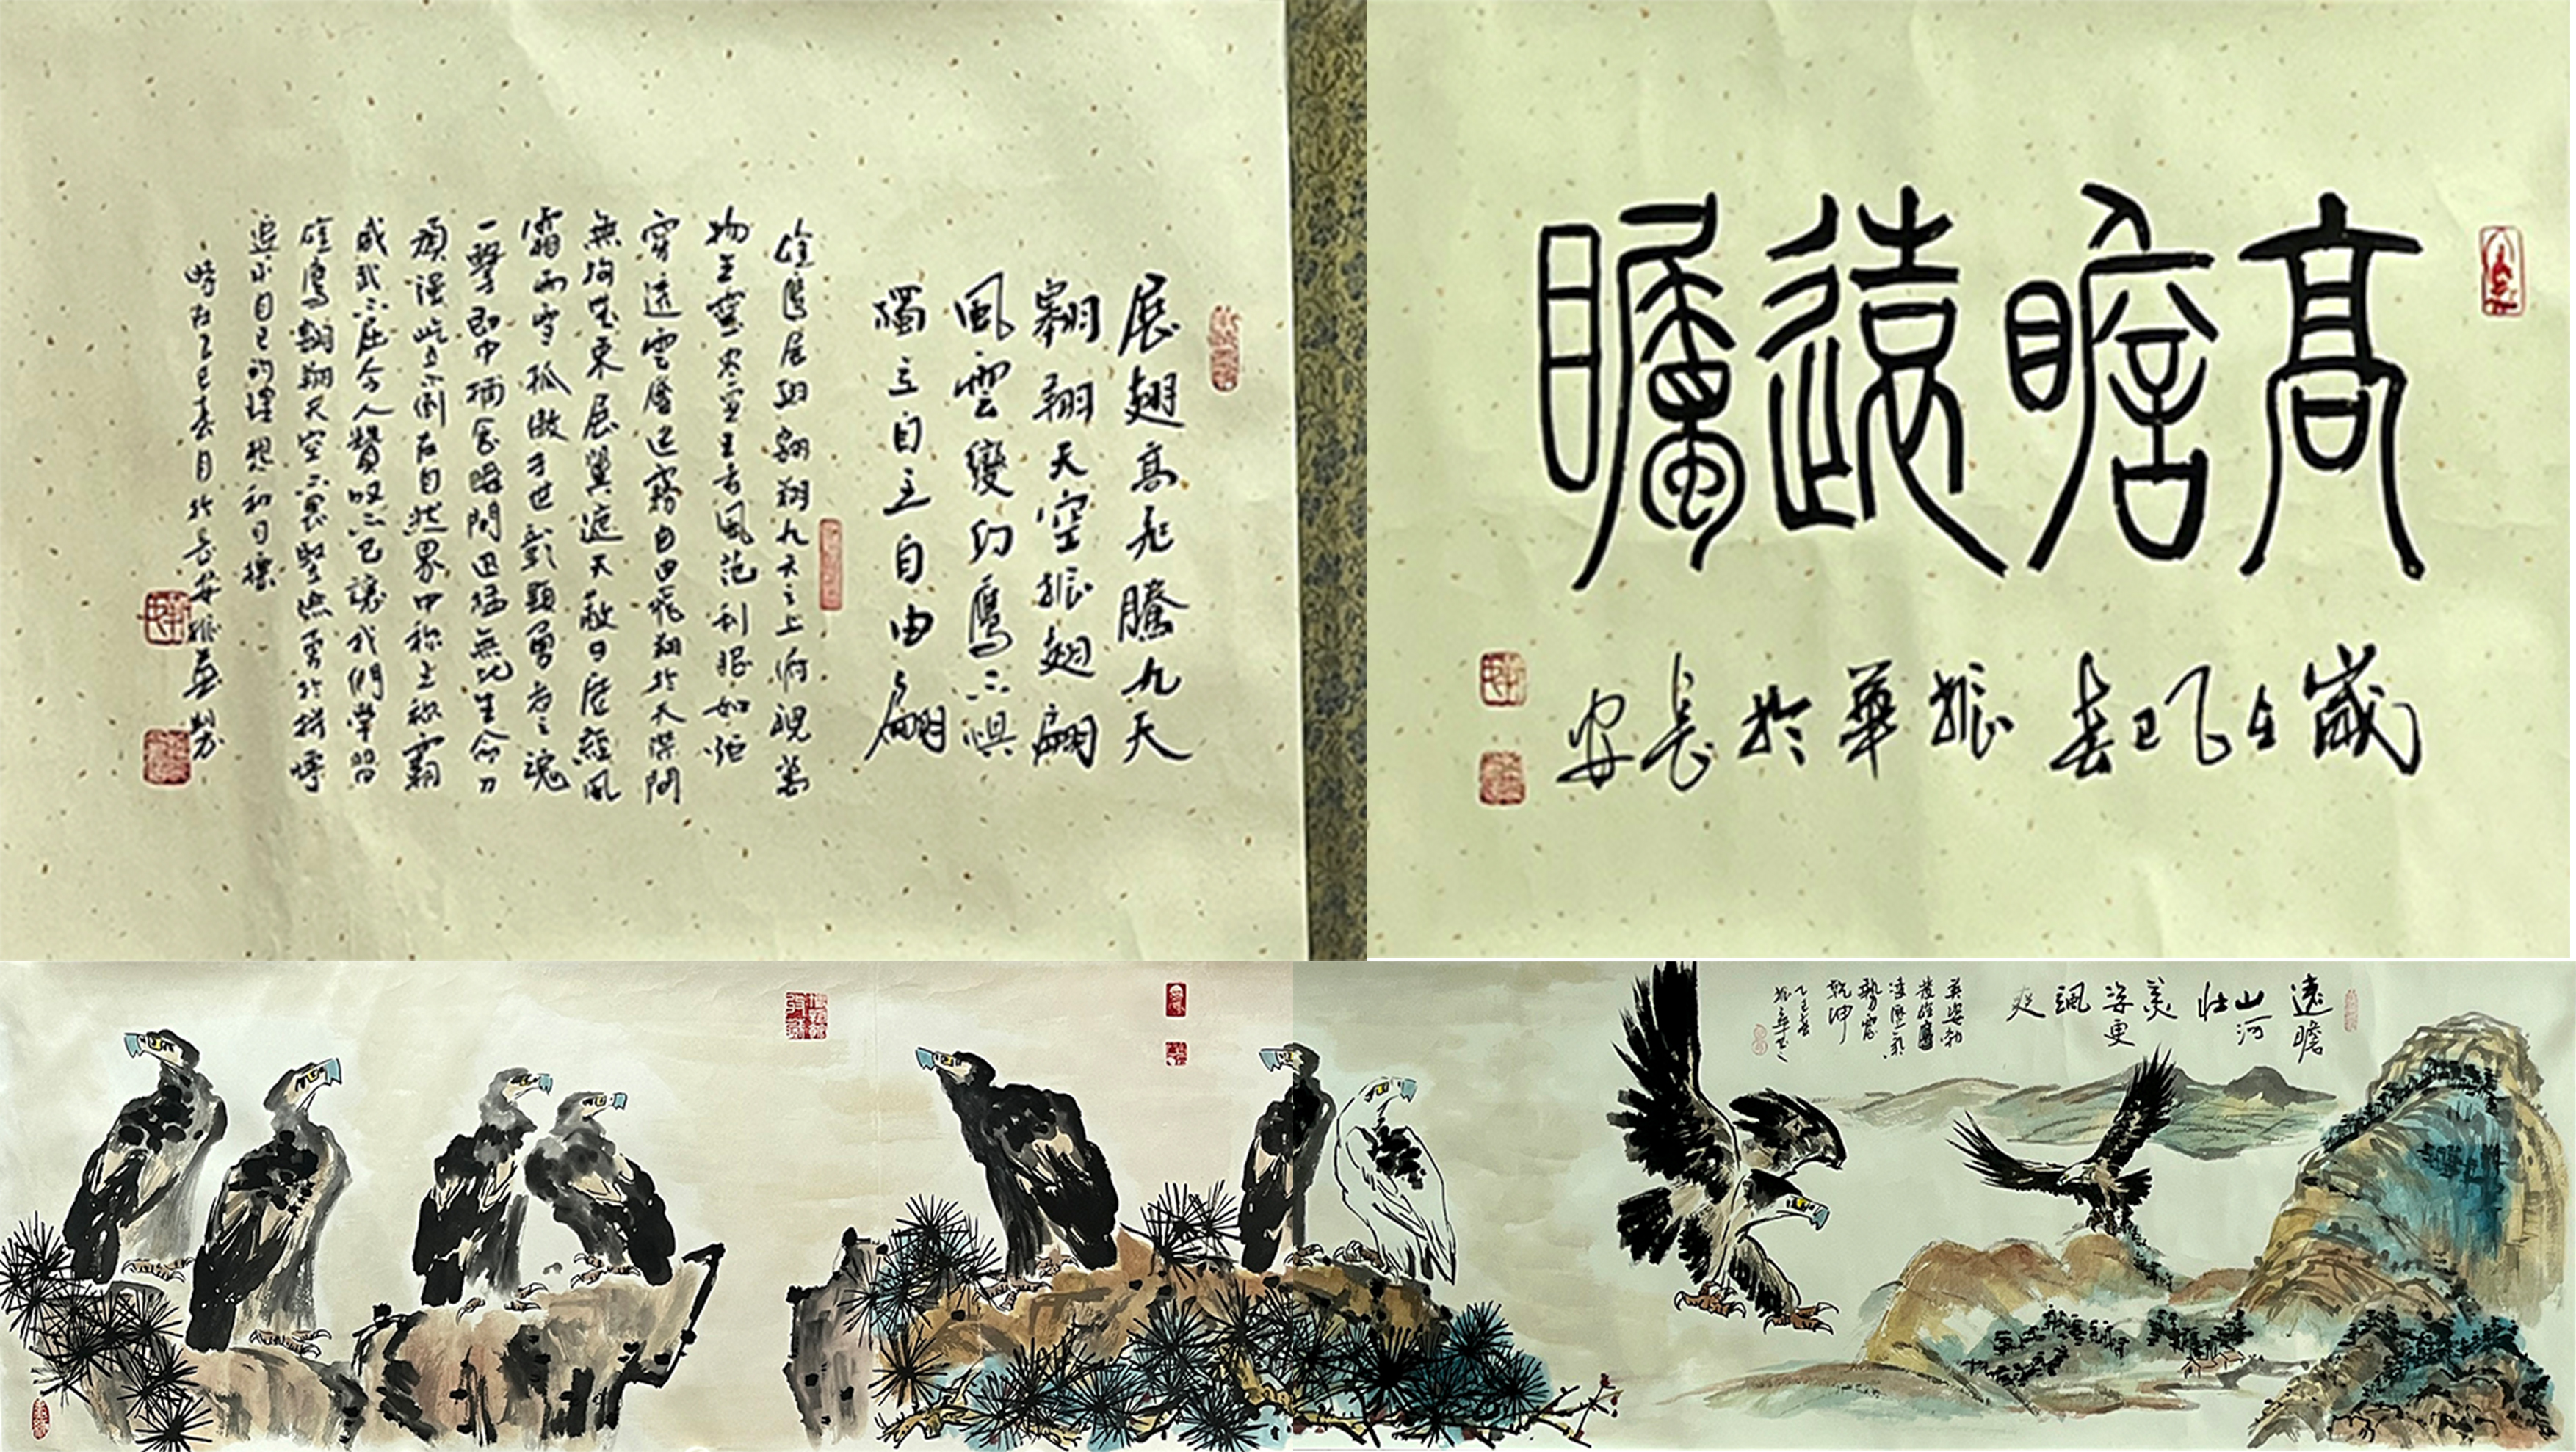 高瞻遠矚
歲在乙巳春振華於長安
展翅高飛騰九天
翱翔天空振翅翩
風雲變幻鷹不惧
獨立自主自由翩
雄鷹展翅翱翔九天之上俯視萬
物主宰蒼穹王者風范利眼如炬
穿透雲層迷霧自由飛翔於天際間
無拘無束展翼遮天蔽日歷經風
霜雨雪孤傲于世彰顯勇者之魂
一擊即中捕食瞬間迅猛無比生命力
頑强屹立不倒在自然界中称王称霸
威武不屈令人贊叹不已讓我們學習
雄鷹翱翔天空不畏堅險勇於拼搏
追求自己的理想和目標
時在乙巳春月於長安振華
遠瞻
山河
壯
美
姿更
颯
爽
英姿勃
發雄鷹
凌歷氣
勢震
乾坤
乙巳春
振華